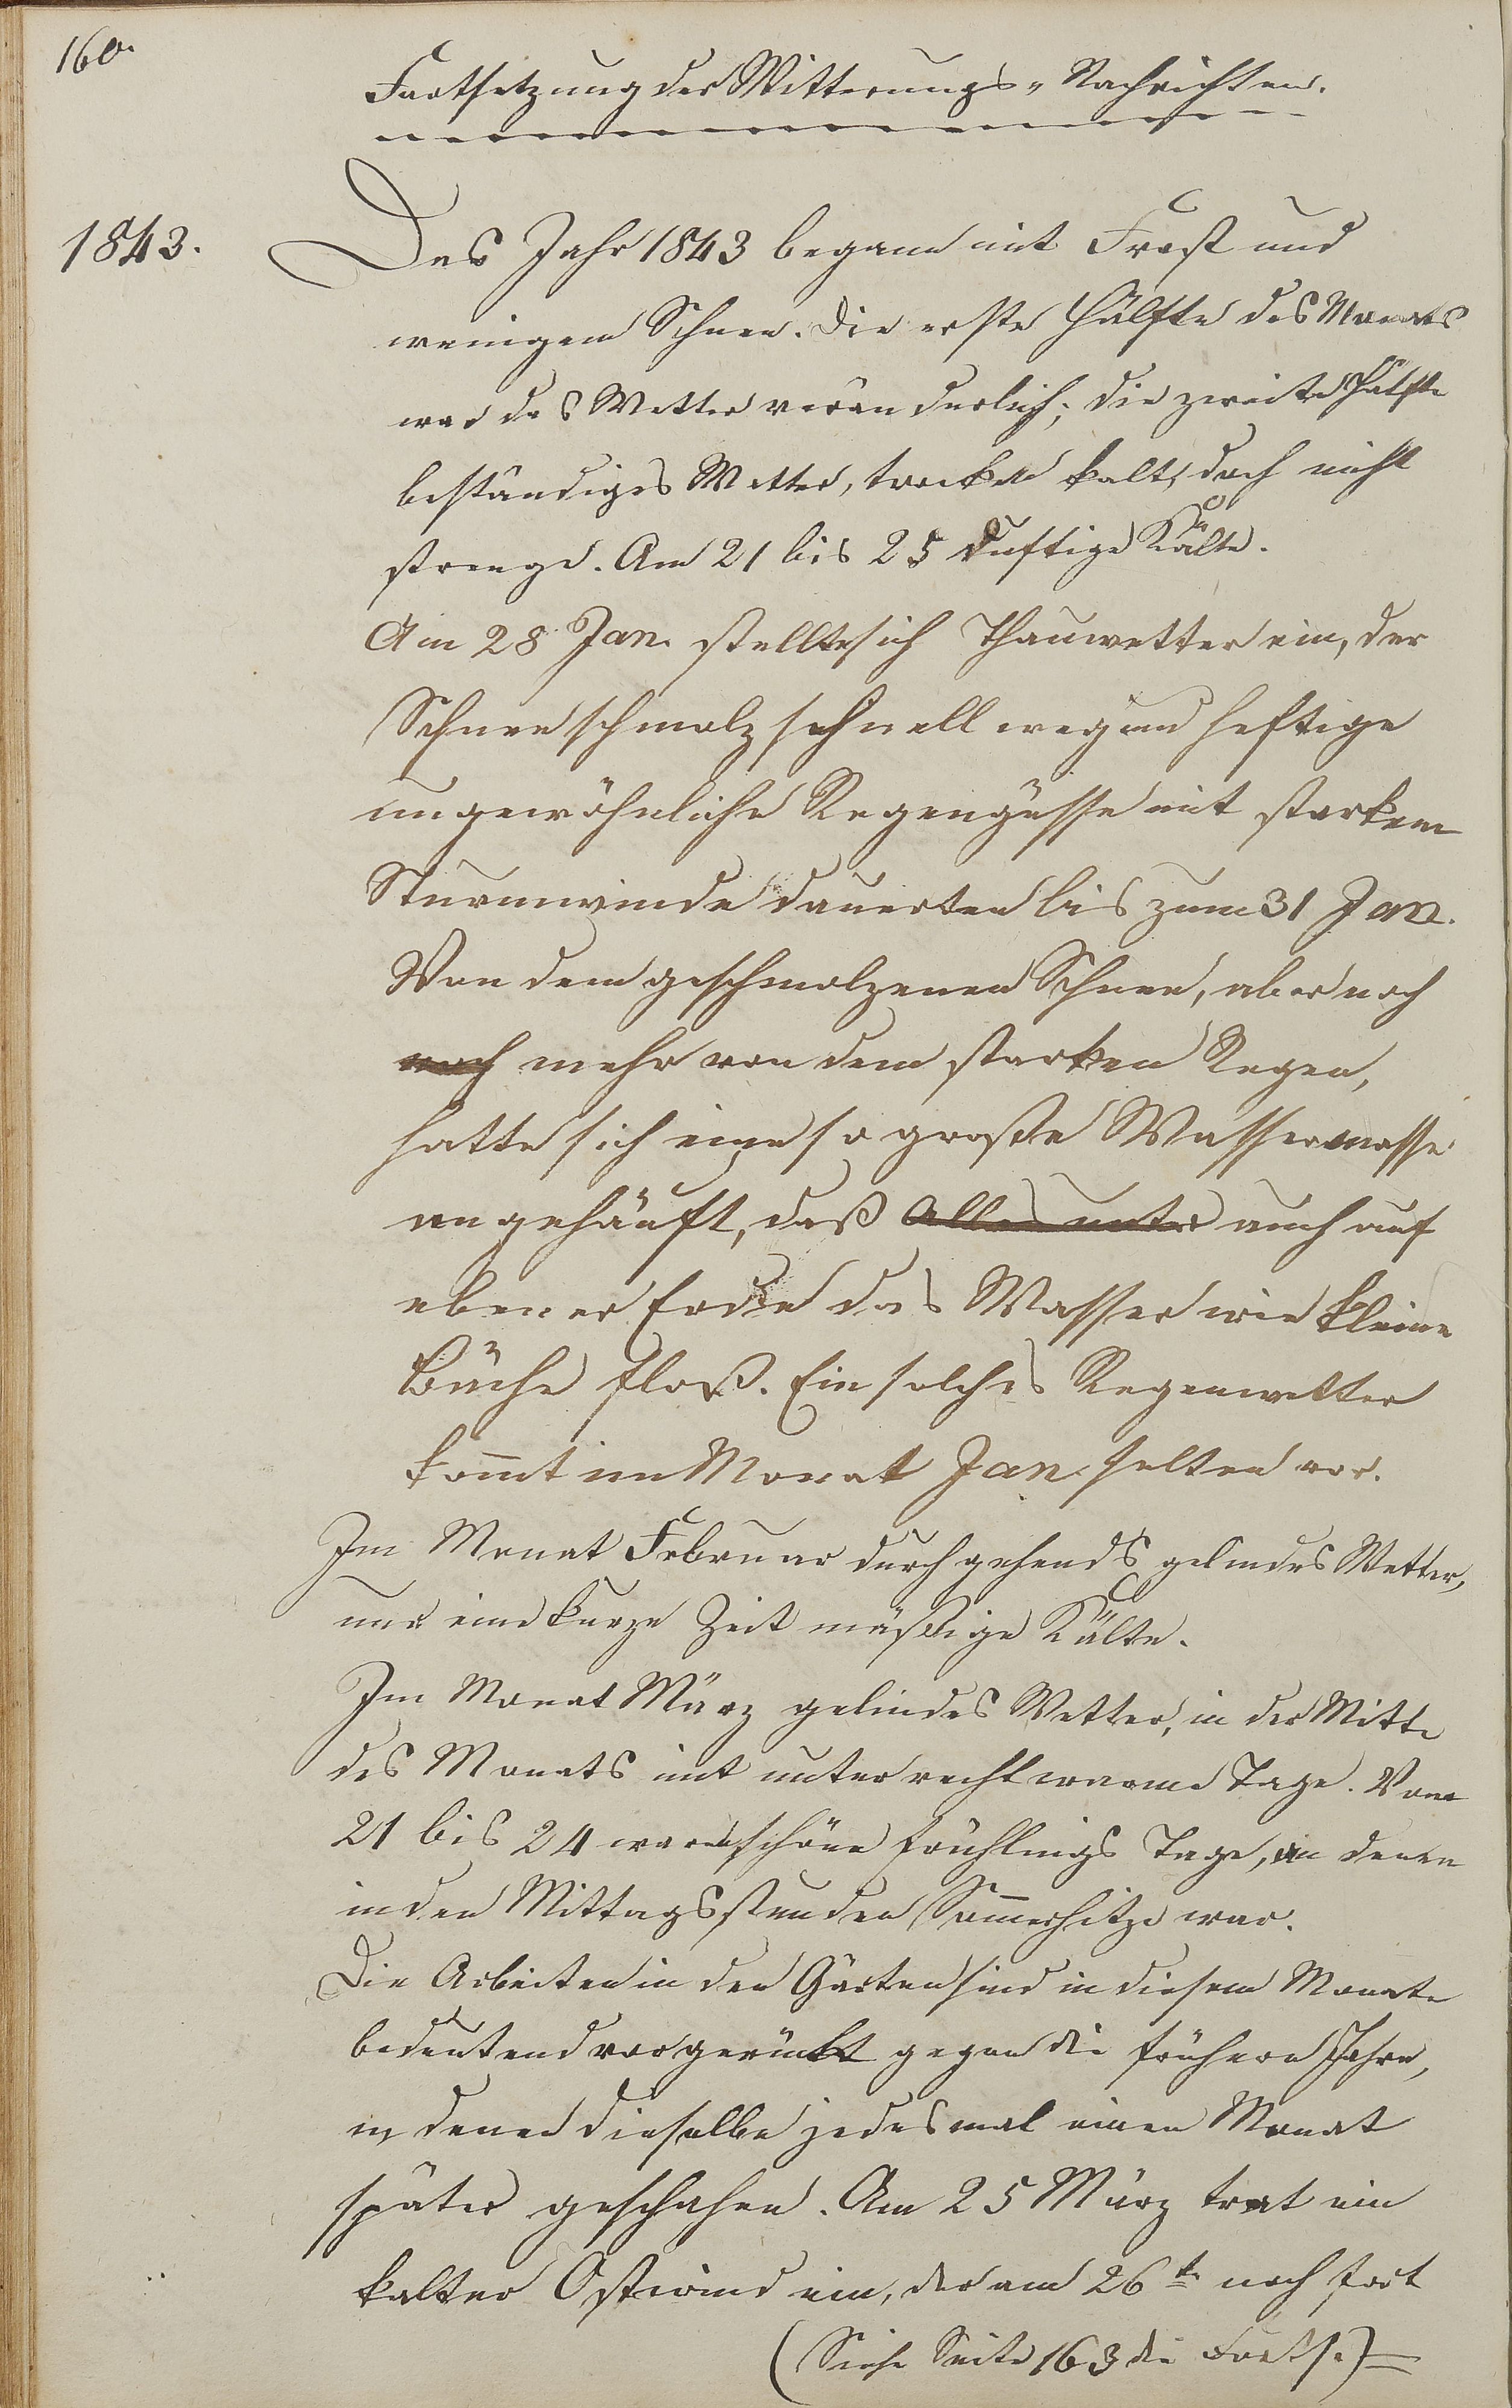 160.
Fortsetzung der Witterungs-Nachrichten.
1843.
Das Jahr 1843 begann mit Frost und
wenigem Schnee. Die erste Hälfte des Monats
war das Wetter veränderlich; die zweite Hälfte
beständiges Wetter, trocken kalt, doch nicht
strenge. Am 21 bis 25 duftige Kälte.
Am 28 Jan. stellte sich Thauwetter ein, der
Schnee schmolz schnell weg und heftige
ungewöhnliche Regengüsse mit starkem
Sturmwinde dauerten bis zum 31 Jan.
Von dem geschmolzenen Schnee, aber noch
noch mehr von dem starken Regen,
hatte sich eine so große Wassermasse
angehäuft, daß Alles unter auch auf
ebener Erde das Wasser wie kleine
Bäche floß. Ein solches Regenwetter
kom̄t im Monat Jan. selten vor.
Im Monat Februar durchgehends gelindes Wetter,
nur eine kurze Zeit mäßige Kälte.
Im Monat März gelindes Wetter, in der Mitte
des Monats mit unter recht warme Tage. Vom
21 bis 24 waren schöne Frühlings Tage, an denen
in den Mittagsstunden Som̄erhitze war.
Die Arbeiten in den Gärten sind in diesem Monate
bedeutend vorgerückt gegen die frühern Jahre,
in denen dieselbe jedesmal einen Monat
später geschahen. Am 25 März trat ein
kalter Ostwind ein, der am 26t. noch fort
(Siehe Seite 163 die Forts.)